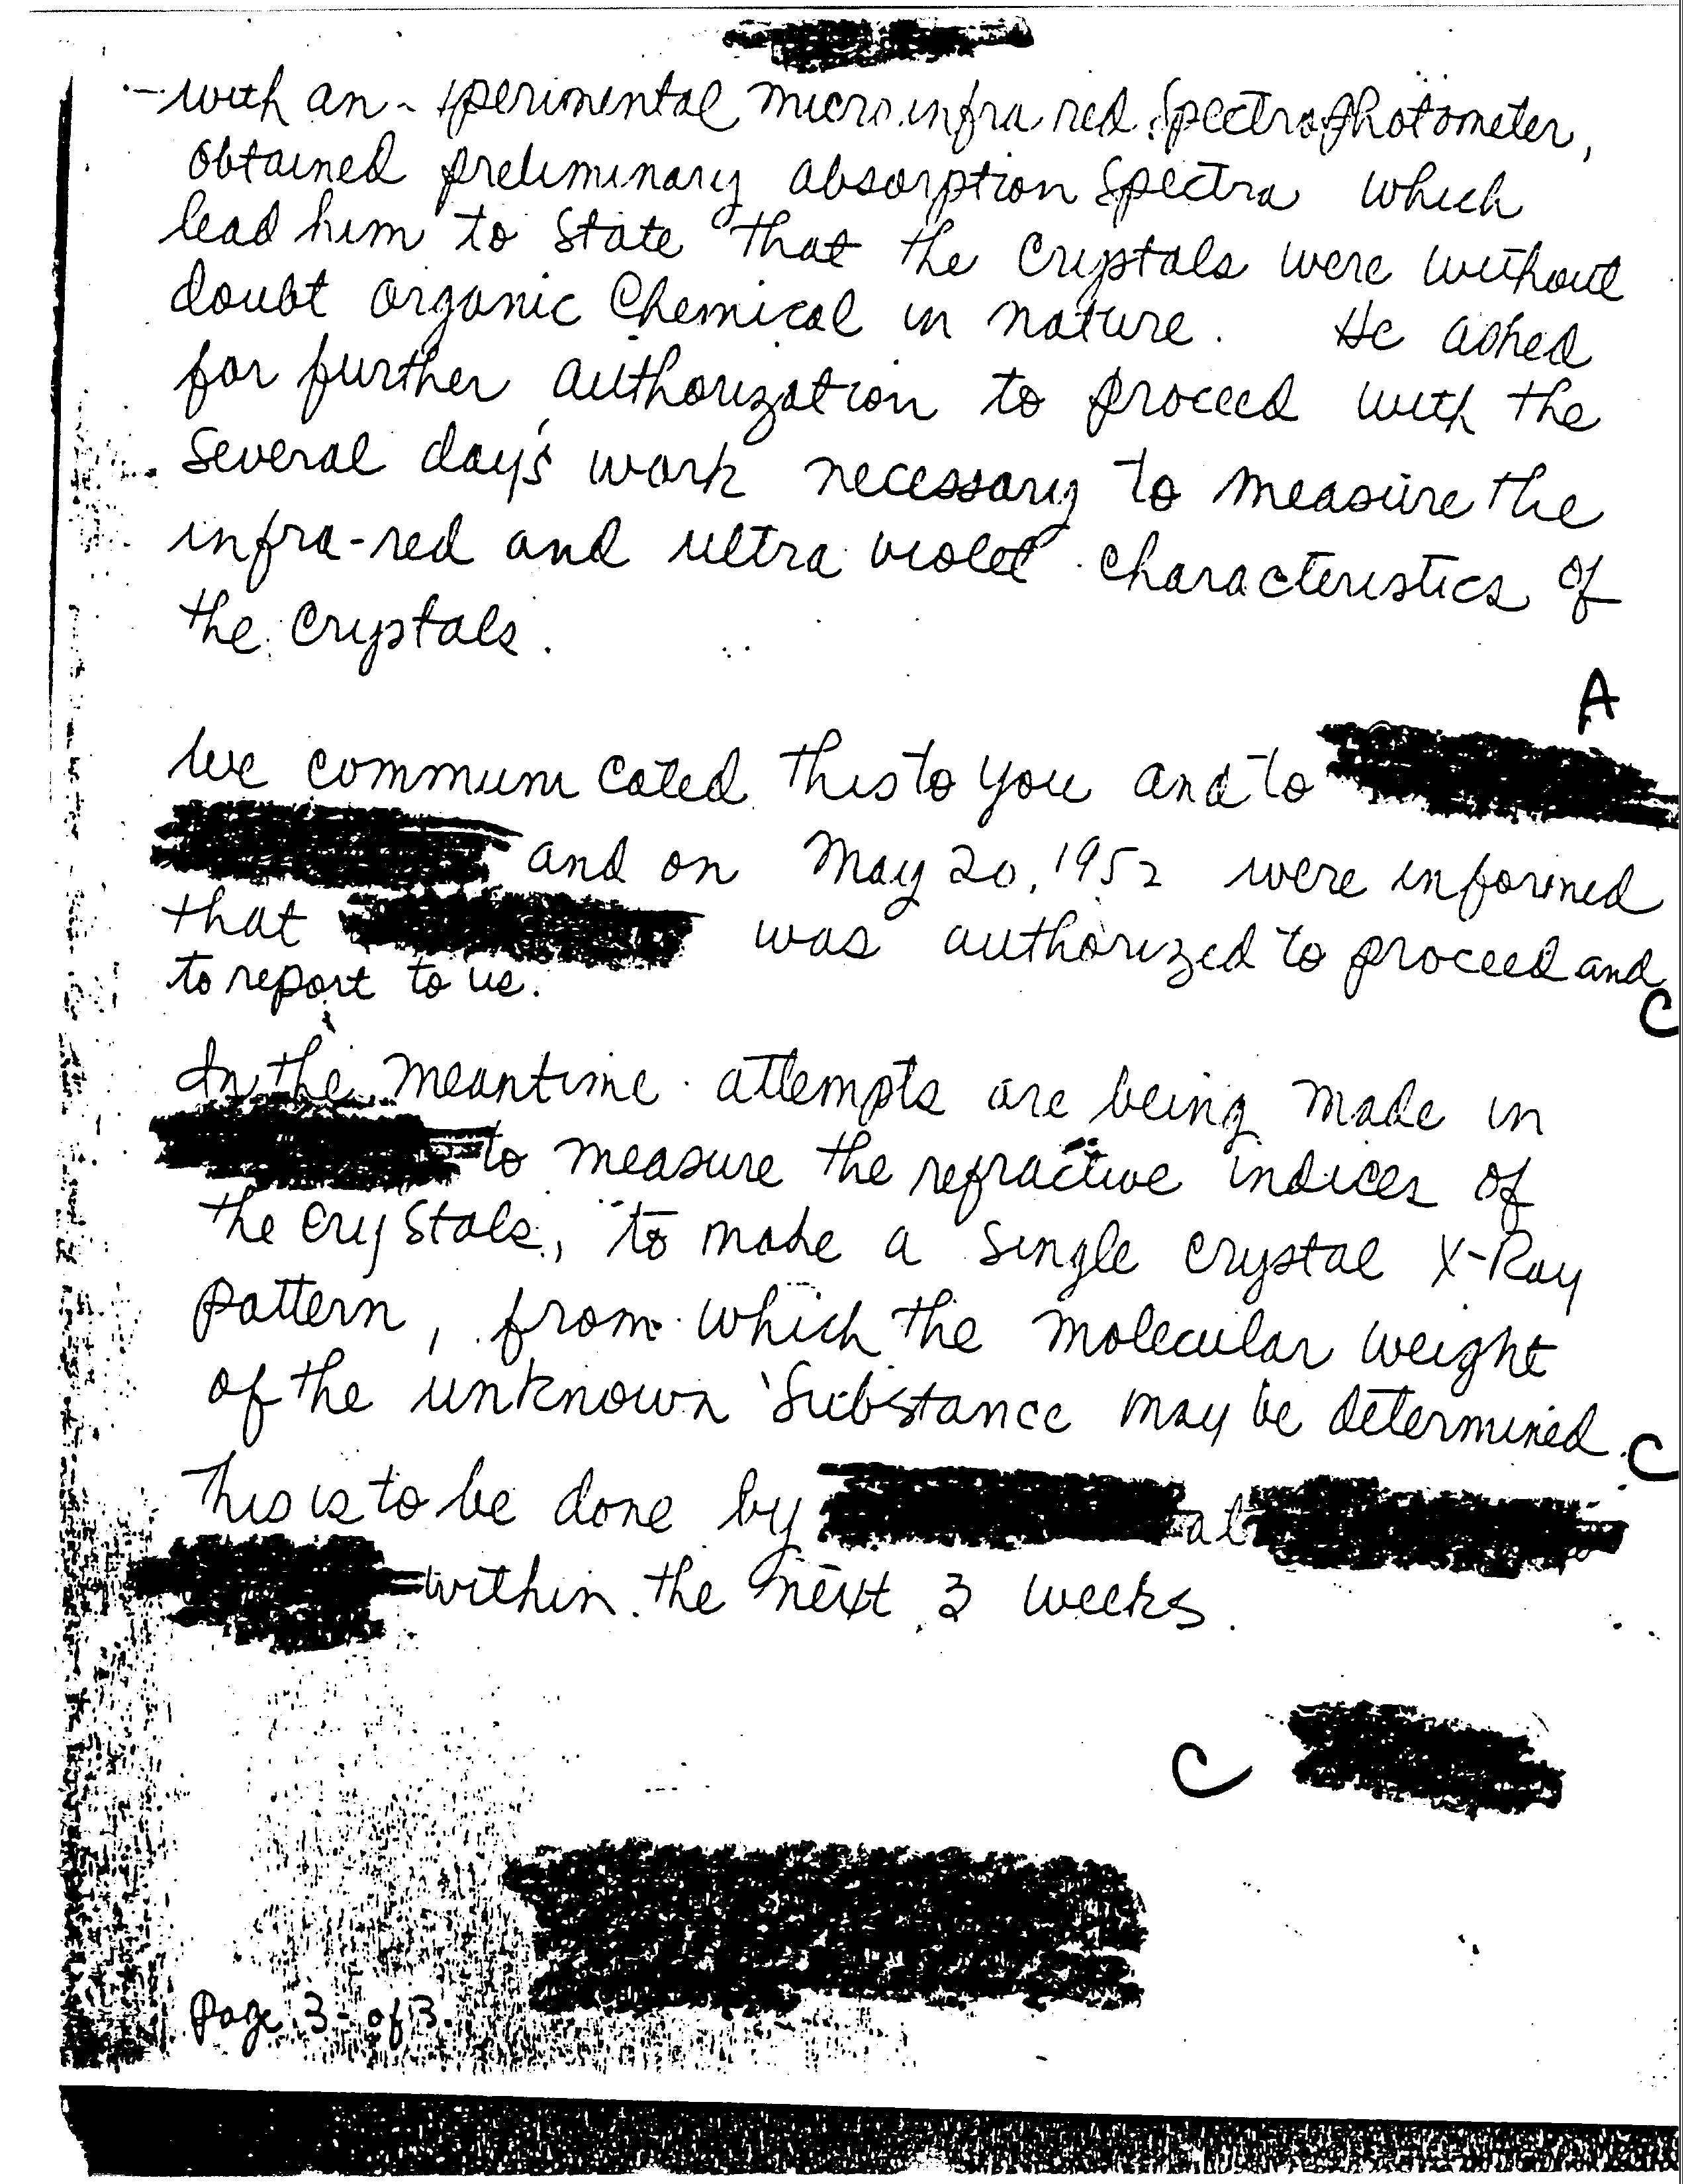 with an sperimental micro infra red Spectrophotometer,
obtained preliminary absorption Spectra which
lead him to State that the Crystals were without
doubt organic Chemical in nature. He asked
for further authorization to proceed with the
Several day's work necessary to measure the
infra-red and ultra violet characteristics of
the Crystals.
A
We communicated this to you and to
and on May 20, 1952 were informed
that was authorized to proceed and
to report to us.
C
In the meantime attempts are being made in
to measure the refractive indices of
the Crystals, to make a Single Crystal X-Ray
Pattern, from which the molecular weight
of the unknown Substance may be determined.
C
This is to be done by at
within the next 3 weeks.
C
Page 3 - of 3.